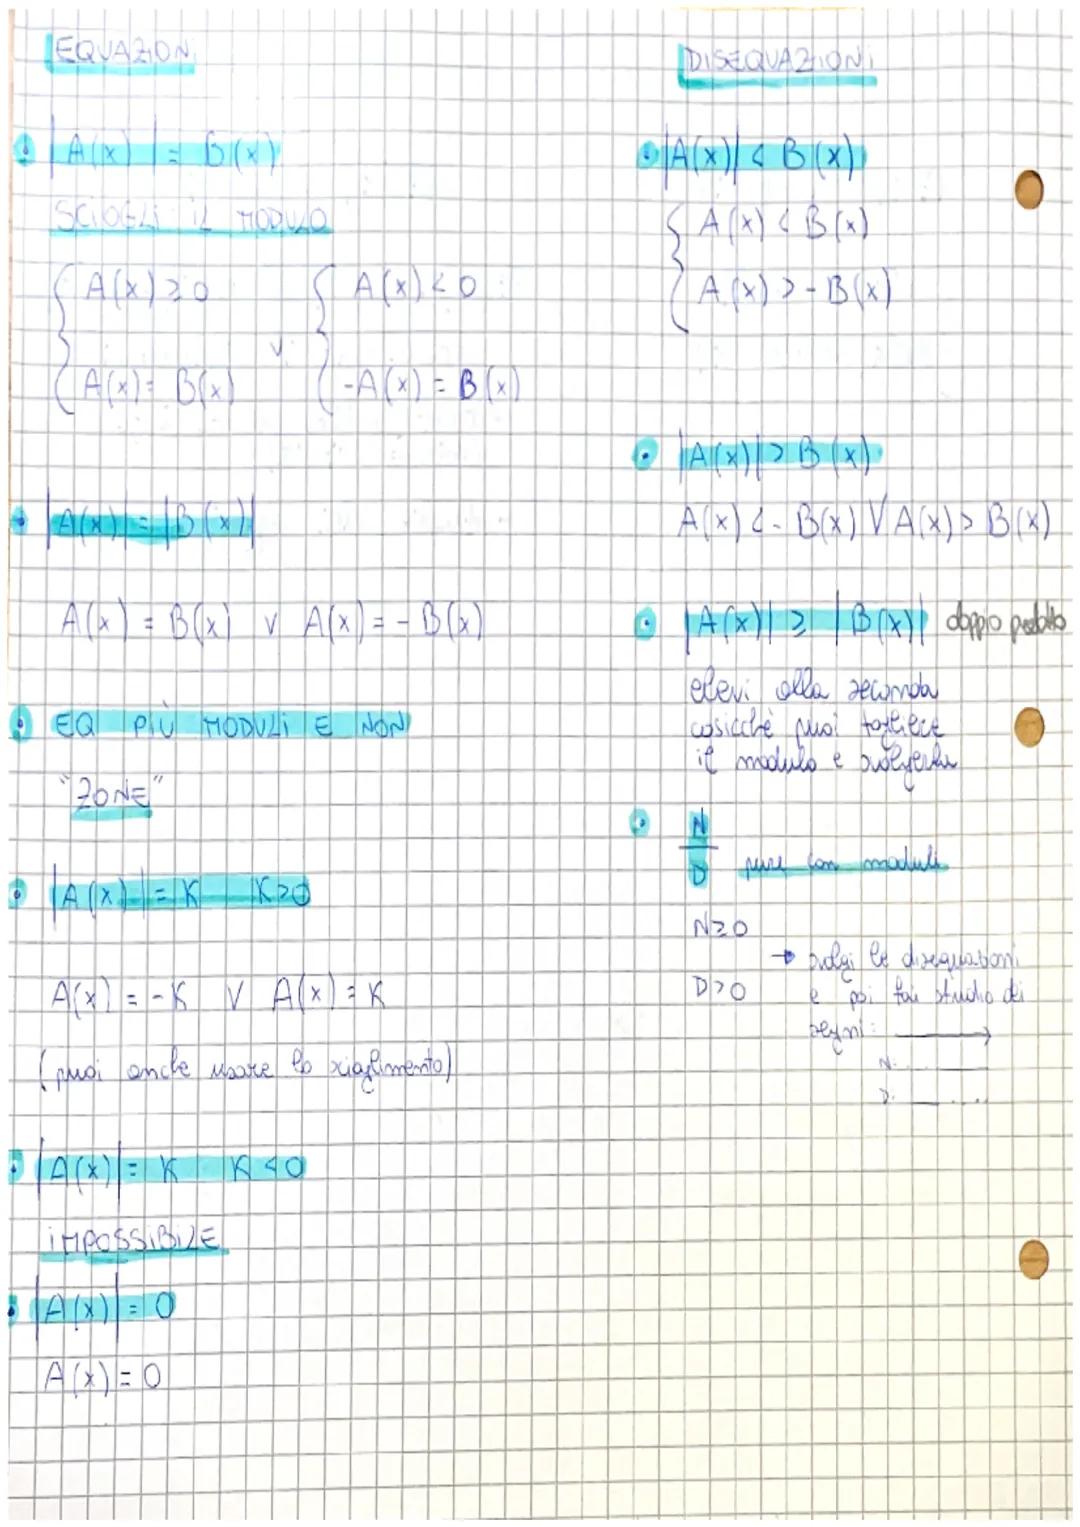 EQUAZIONI
|A(x)| = B(x)
SCIOGLI IL MODULO
{ A(x) ≥ 0
A(x) = B(x)
v
{ A(x) < 0
-A(x) = B(x)
|A(x)| = |B(x)|
A(x) = B(x) v A(x) = - B(x)
EQ PIÙ MODULI E NON
"ZONE"
|A(x)| = K K>0
A(x) = -K V A(x) = K
(puoi anche usare lo scioglimento)
|A(x)| = K K<0
IMPOSSIBILE
|A(x)| = 0
A(x) = 0
DISEQUAZIONI
|A(x)| < B(x)
{ A(x) < B(x)
A(x) > - B(x)
|A(x)| > B(x)
A(x) < - B(x) V A(x) > B(x)
|A(x)| ≥ |B(x)| doppio
elevi alla seconda
cosicché puoi togliere
il modulo e svolgerla
N
D
pure con moduli
N≥0
D>0
→ svolgi le disequazioni
e poi fai studio dei
segni:
N.
D.